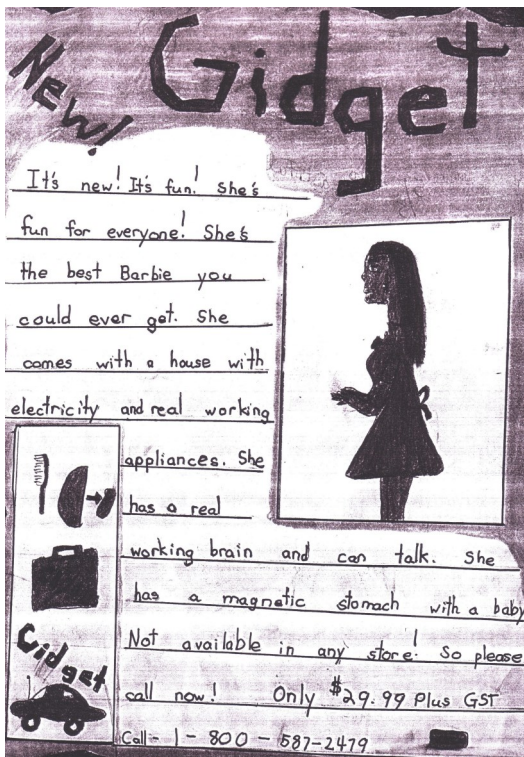 New!
Gidget
It's new! It's fun! She's
fun for everyone! She's
the best Barbie you
could ever get. She
comes with a house with
electricity and real working
appliances. She
has a real
working brain and can talk. She
has a magnetic stomach with a baby
Not available in any store! So please
call now! Only $29.99 Plus GST
Call- 1-800-587-2479
Gidget